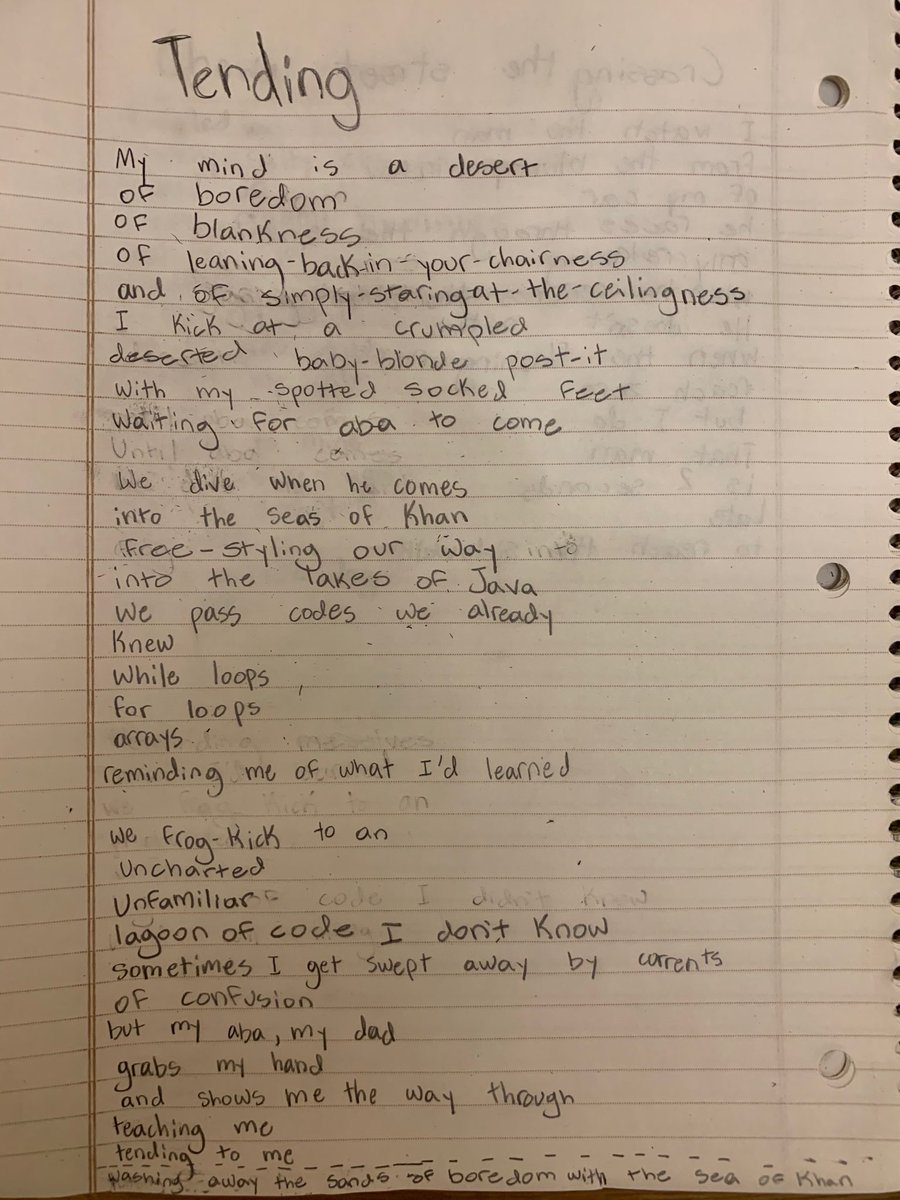 Tending
My mind is a desert
of boredom
of blankness
of leaning-back-in-your-chairness
and of simply-staring-at-the-ceilingness
I kick at a crumpled
deserted baby-blonde post-it
with my spotted socked feet
waiting for aba to come
Until aba comes
We dive when he comes
into the seas of Khan
free-styling our way into
into the lakes of Java
we pass codes we already
knew
while loops
for loops
arrays
reminding me of what I'd learned
we frog-kick to an
we frog-kick to an
Uncharted
Unfamiliar code I didn't know
lagoon of code I don't know
sometimes I get swept away by currents
of confusion
but my aba, my dad
grabs my hand
and shows me the way through
teaching me
tending to me
washing away the sands of boredom with the sea of Khan